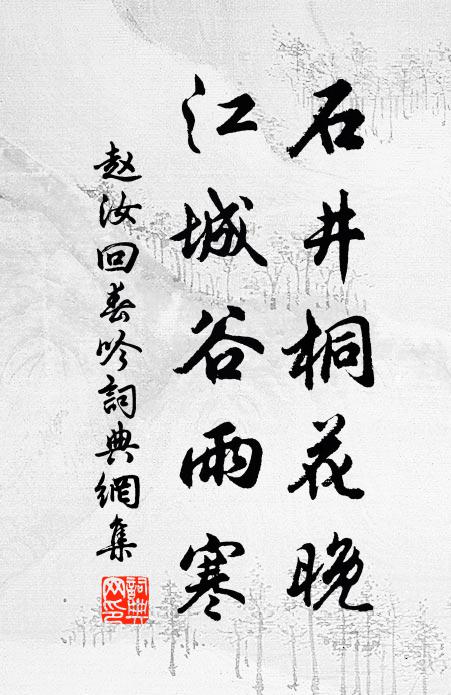 石井桐花晚
江城谷雨寒
赵汝回春吟詞典網集
詞典网印